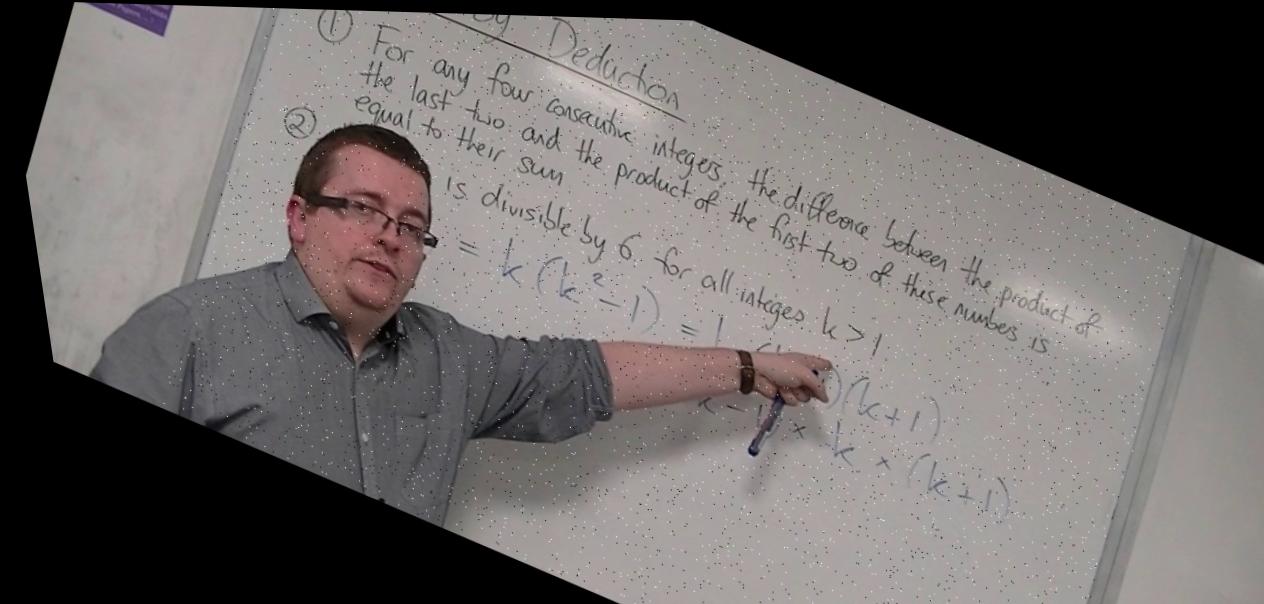 By Deduction
① For any four consecutive integers, the difference between the product of
the last two and the product of the first two of these numbers is
equal to their sum
② is divisible by 6 for all integers k > 1
= k (k² - 1) = k )(k+1)
k - 1 × k × (k+1)